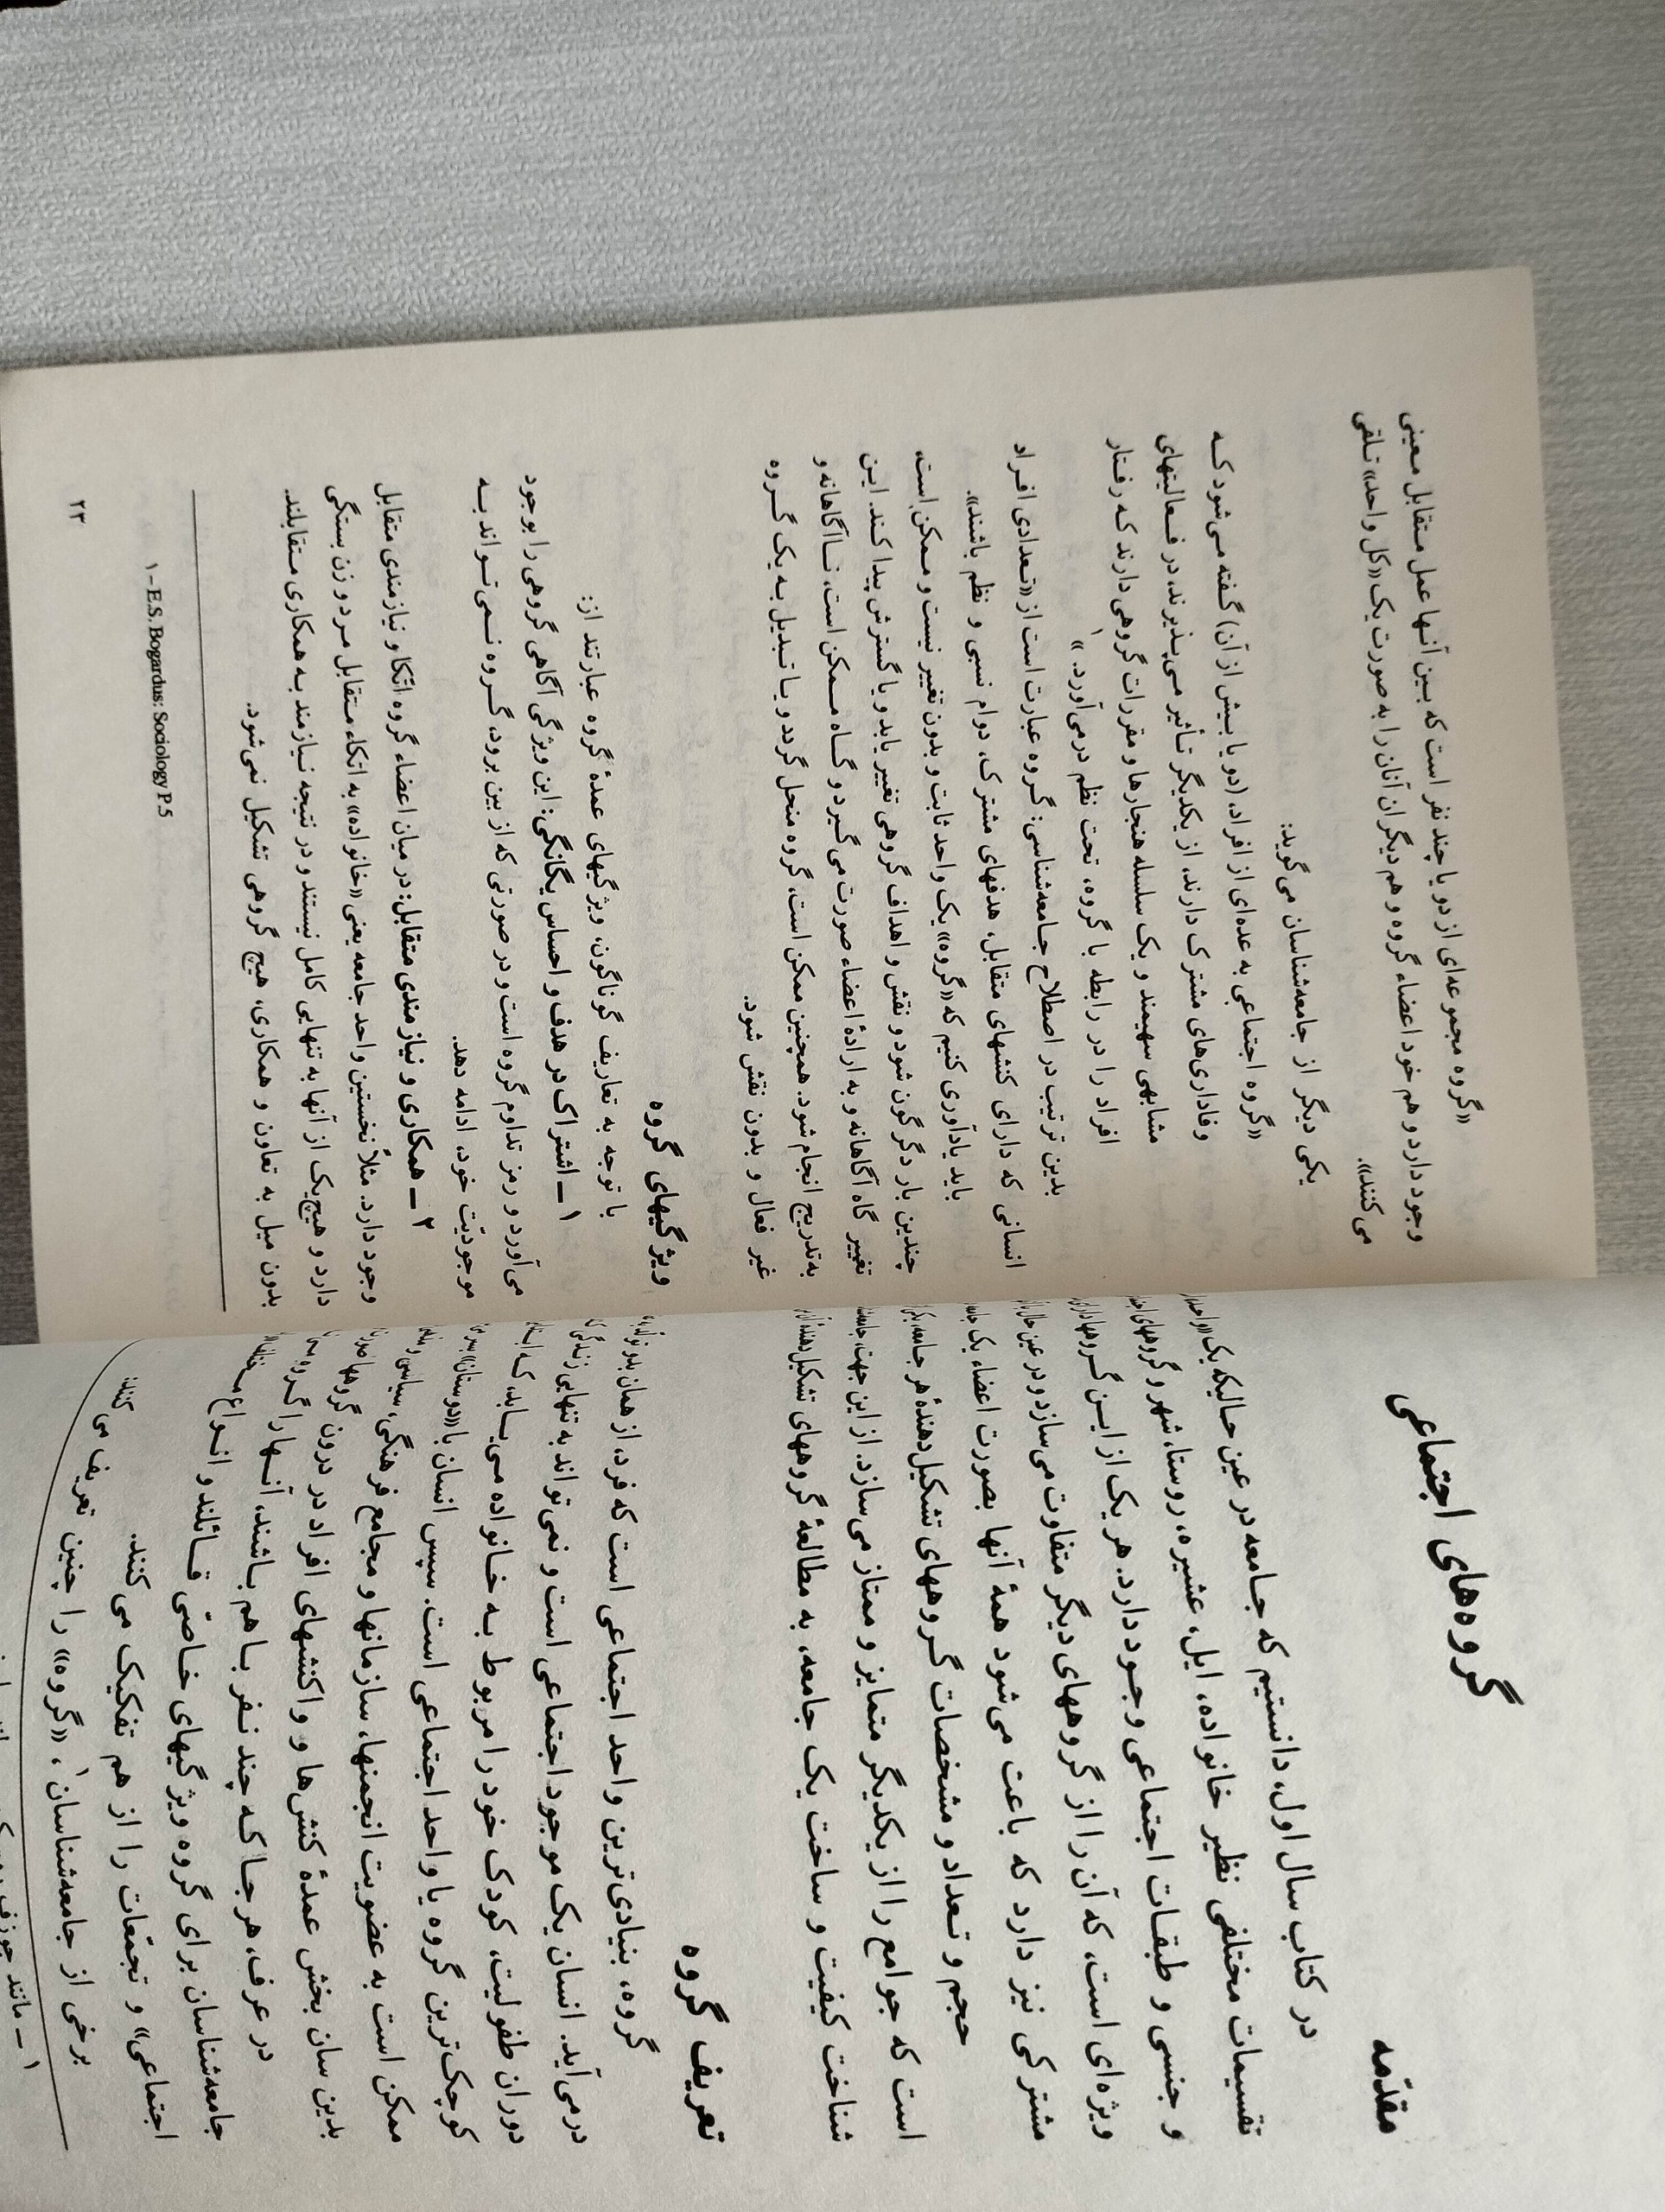 گروه‌های اجتماعی
مقدّمه
در کتاب سال اول، دانستیم که جامعه در عین حالیکه یک
تقسیمات مختلفی نظیر خانواده، ایل، عشیره، روستا، شهر و گروههای
و جنسی و طبقات اجتماعی وجود دارد. هر یک از این گروهها
ویژه‌ای است، که آن را از گروههای دیگر متفاوت می‌سازد و در عین حال
مشترکی نیز دارد که باعث می‌شود همهٔ آنها بصورت اعضاء یک
حجم و تعداد و مشخصات گروههای تشکیل‌دهندهٔ هر جامعه،
است که جوامع را از یکدیگر متمایز و ممتاز می‌سازد. از این جهت،
شناخت کیفیت و ساخت یک جامعه، به مطالعهٔ گروههای تشکیل‌دهندهٔ
تعریف گروه
گروه، بنیادی‌ترین واحد اجتماعی است که فرد، از همان بدو
درمی‌آید. انسان یک موجود اجتماعی است و نمی‌تواند به تنهایی زندگی
دوران طفولیت، کودک خود را مربوط به خانواده می‌یابد، که
کوچک‌ترین گروه یا واحد اجتماعی است. سپس انسان با «دوستان»
ممکن است به عضویت انجمنها، سازمانها و مجامع فرهنگی، سیاسی و
بدین سان بخش عمدهٔ کنش‌ها و واکنشهای افراد در درون گروهها
در عرف، هر جا که چند نفر با هم باشند، آنها را گروه
جامعه‌شناسان برای گروه ویژگیهای خاصّی قائلند و انواع
اجتماعی» و تجمّعات را از هم تفکیک می‌کنند.
برخی از جامعه‌شناسان۱، «گروه» را چنین تعریف می‌کنند:
۱ – مانند جوزف
«گروه مجموعه‌ای از دو یا چند نفر است که بین آنها عمل متقابل معینی
وجود دارد و هم خود اعضاء گروه و هم دیگران آنان را به صورت یک «کل واحد» تلقی
می‌کنند».
یکی دیگر از جامعه‌شناسان می‌گوید:
«گروه اجتماعی به عده‌ای از افراد، (دو یا بیش از آن) گفته می‌شود که
وفاداری‌های مشترک دارند، از یکدیگر تأثیر می‌پذیرند، در فعالیتهای
مشابهی سهیمند و یک سلسله هنجارها و مقررات گروهی دارند که رفتار
افراد را در رابطه با گروه، تحت نظم درمی‌آورد. »۱
بدین ترتیب در اصطلاح جامعه‌شناسی: گروه عبارت است از «تعدادی افراد
انسانی که دارای کنشهای متقابل، هدفهای مشترک، دوام نسبی و نظم باشند».
باید یادآوری کنیم که «گروه» یک واحد ثابت و بدون تغییر نیست و ممکن است،
چندین بار دگرگون شود و نقش و اهداف گروهی تغییر یابد و یا گسترش پیدا کند. این
تغییر گاه آگاهانه و به ارادهٔ اعضاء صورت می‌گیرد و گاه ممکن است، ناآگاهانه و
به‌تدریج انجام شود. همچنین ممکن است، گروه منحل گردد و یا تبدیل به یک گروه
غیر فعال و بدون نقش شود.
ویژگیهای گروه
با توجه به تعاریف گوناگون، ویژگیهای عمدهٔ گروه عبارتند از:
۱ – اشتراک در هدف و احساس یگانگی: این ویژگی آگاهی گروهی را بوجود
می‌آورد و رمز تداوم گروه است و در صورتی که از بین برود، گروه نمی‌تواند به
موجودیّت خود، ادامه دهد.
۲ – همکاری و نیازمندی متقابل: در میان اعضاء گروه اتّکا و نیازمندی متقابل
وجود دارد. مثلاً نخستین واحد جامعه یعنی «خانواده» به اتکاء متقابل مرد و زن بستگی
دارد و هیچ‌یک از آنها به تنهایی کامل نیستند و در نتیجه نیازمند به همکاری متقابلند.
بدون میل به تعاون و همکاری، هیچ گروهی تشکیل نمی‌شود.
۱ – E.S. Bogardus: Sociology P.5
۲۳